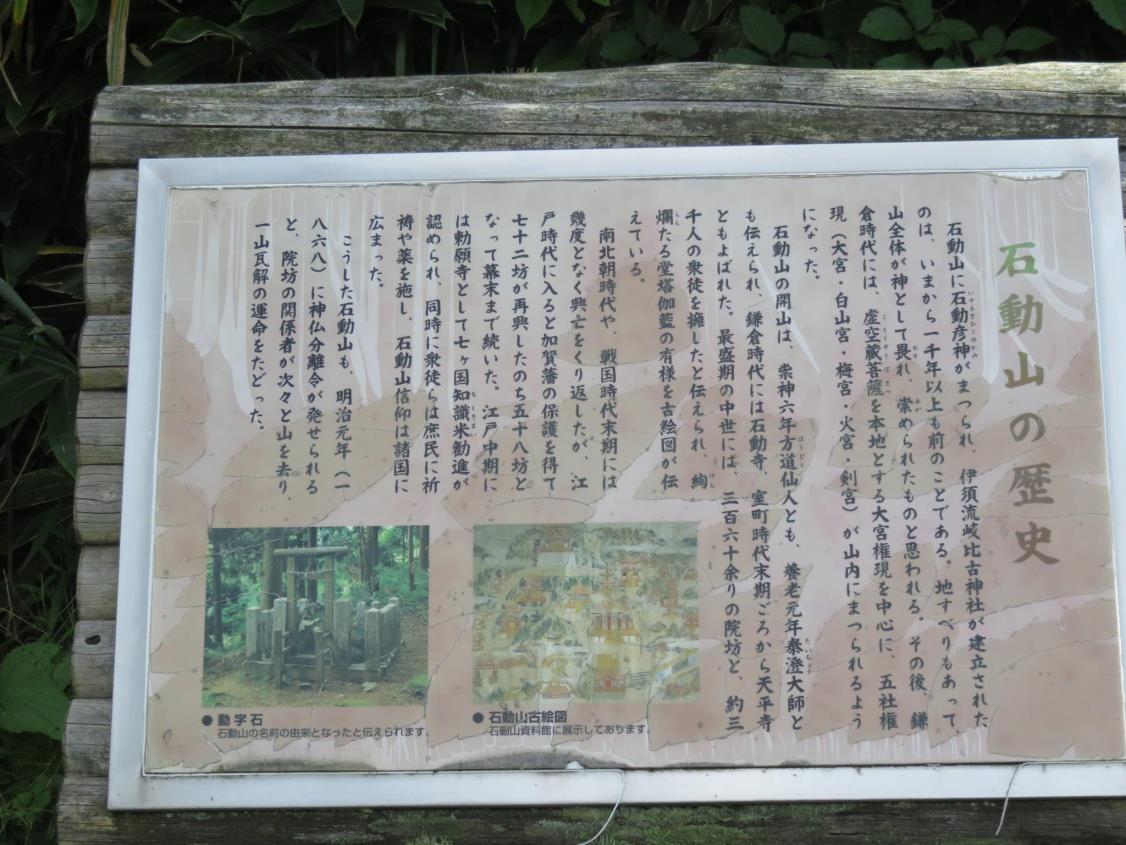 石動山の歴史
石動山に石動彦神がまつられ、伊須流岐比古神社が建立された
いするぎひこのかみ
のは、いまから一千年以上も前のことである。地すべりもあって、
山全体が神として畏れ、崇められたものと思われる。その後、鎌
おそ
あが
倉時代には、虚空蔵菩薩を本地とする大宮権現を中心に、五社権
こくうぞうぼさつ
現（大宮・白山宮・梅宮・火宮・剣宮）が山内にまつられるよう
になった。
石動山の開山は、崇神六年方道仙人とも、養老元年泰澄大師と
ほうどう
たいちょう
も伝えられ、鎌倉時代には石動寺、室町時代末期ごろから天平寺
ともよばれた。最盛期の中世には、三百六十余りの院坊と、約三
千人の衆徒を擁したと伝えられ、絢
けん
爛たる堂塔伽藍の有様を古絵図が伝
らん
えている。
南北朝時代や、戦国時代末期には
幾度となく興亡をくり返したが、江
戸時代に入ると加賀藩の保護を得て
七十二坊が再興したのち五十八坊と
なって幕末まで続いた。江戸中期に
は勅願寺として七ヶ国知識米勧進が
ちしきまい
認められ、同時に衆徒らは庶民に祈
祷や薬を施し、石動山信仰は諸国に
広まった。
こうした石動山も、明治元年（一
八六八）に神仏分離令が発せられる
と、院坊の関係者が次々と山を去り、
一山瓦解の運命をたどった。
●石動山古絵図
石動山資料館に展示してあります。
●動字石
石動山の名前の由来となったと伝えられます。